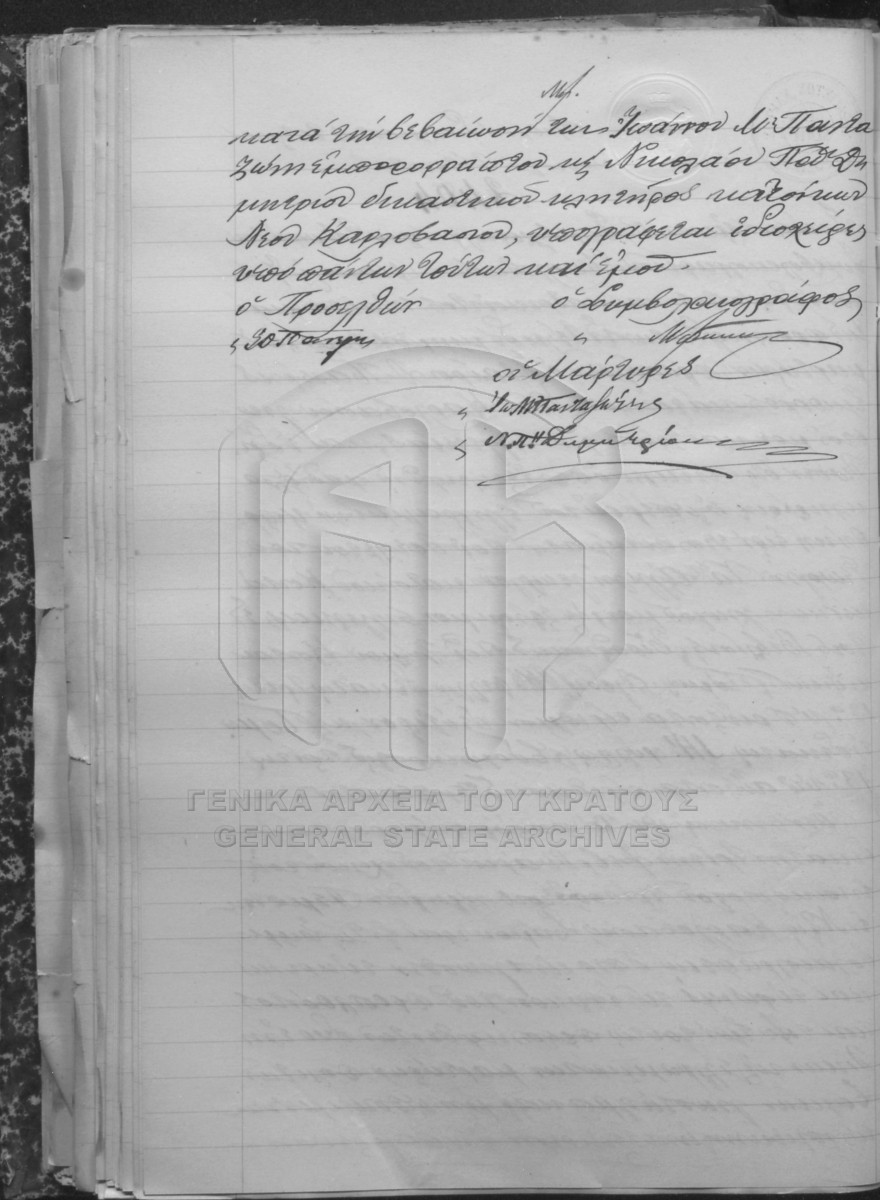 κατὰ τὴν βεβαίωσιν των Ἰωάννου Μ. Παντα
ζώνη ἐμποροῤῥάπτου κ Νικολάου Δη
μητρίου δικαστικοῦ κλητῆρος κατοίκων
Νέου Καρλοβασίου, υπογράφεται ἰδιοχείρως
υπὸ πάντων τούτων καὶ ἐμοῦ.
ὁ Προσελθών ὁ Συμβολαιογράφος
οἱ Μάρτυρες
Ἰω. Μ. Πανταζώνης
Ν. Δημητρίου
ΓΕΝΙΚΑ ΑΡΧΕΙΑ ΤΟΥ ΚΡΑΤΟΥΣ
GENERAL STATE ARCHIVES